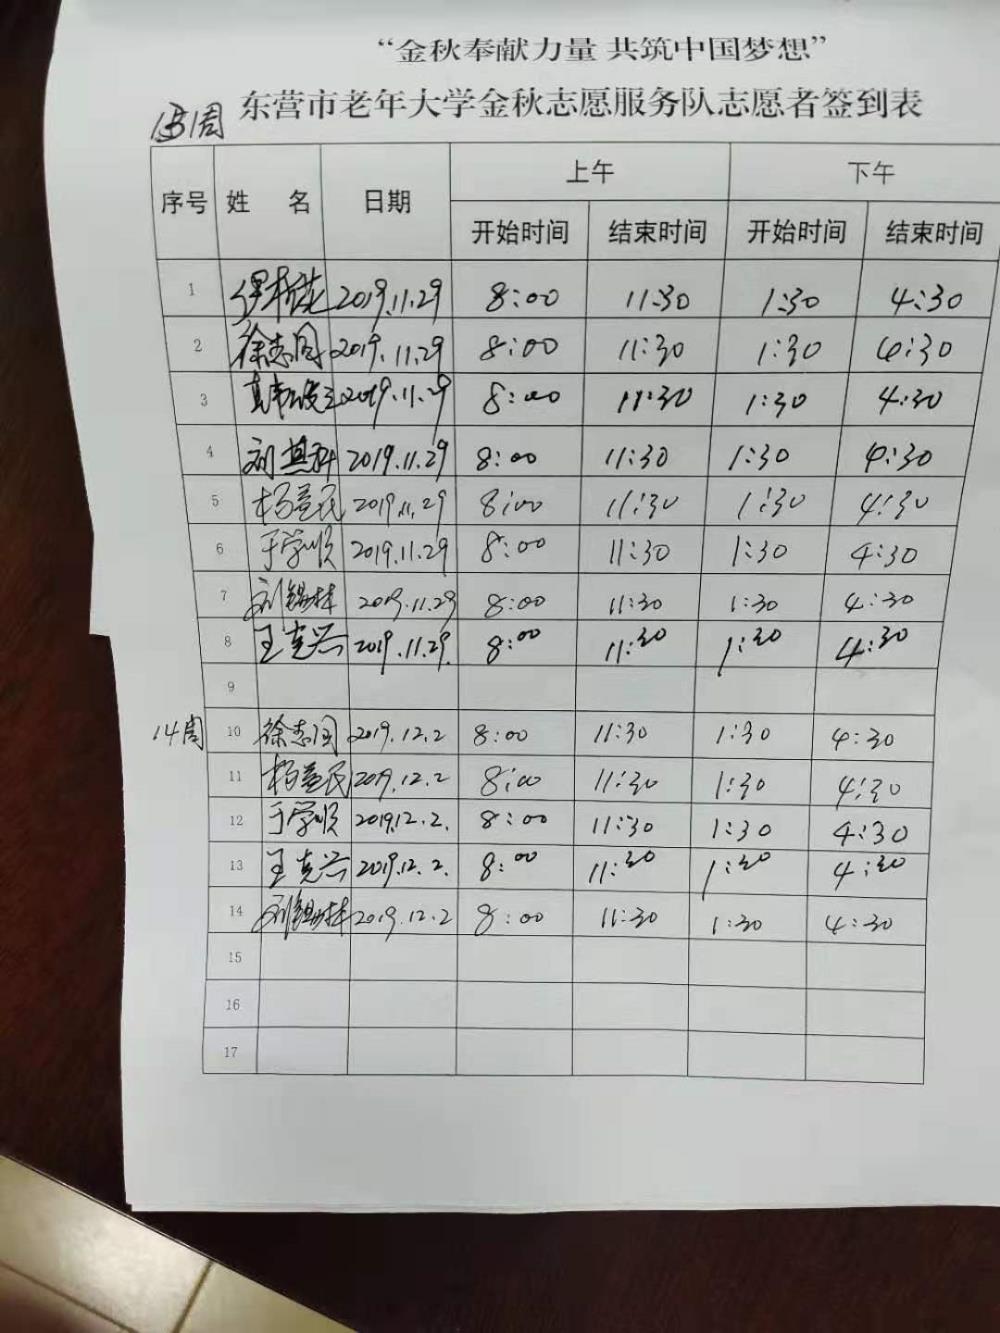 “金秋奉献力量 共筑中国梦想”
东营市老年大学金秋志愿服务队志愿者签到表
周
序号 姓 名 日期 上午 下午
开始时间 结束时间 开始时间 结束时间
1 2019.11.29 8:00 11:30 1:30 4:30
2 徐志国 2019.11.29 8:00 11:30 1:30 4:30
3 2019.11.29 8:00 11:30 1:30 4:30
4 刘其科 2019.11.29 8:00 11:30 1:30 4:30
5 杨益民 2019.11.29 8:00 11:30 1:30 4:30
6 于学顺 2019.11.29 8:00 11:30 1:30 4:30
7 刘锡林 2019.11.29 8:00 11:30 1:30 4:30
8 王克兴 2019.11.29. 8:00 11:30 1:30 4:30
9
14周 10 徐志国 2019.12.2 8:00 11:30 1:30 4:30
11 杨益民 2019.12.2 8:00 11:30 1:30 4:30
12 于学顺 2019.12.2. 8:00 11:30 1:30 4:30
13 王克兴 2019.12.2. 8:00 11:30 1:30 4:30
14 刘锡林 2019.12.2 8:00 11:30 1:30 4:30
15
16
17